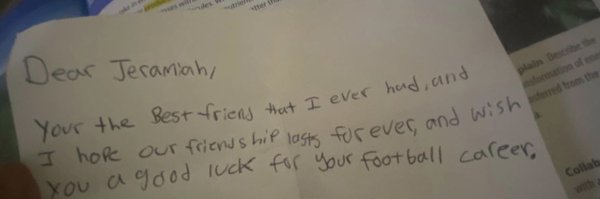 Dear Jeramiah,
Your the Best-friend that I ever had, and
I hope our friendship lasts forever, and wish
you a good luck for your football career.
plain Describe the
nsformation of ene
nsferred from the
Collab
with a